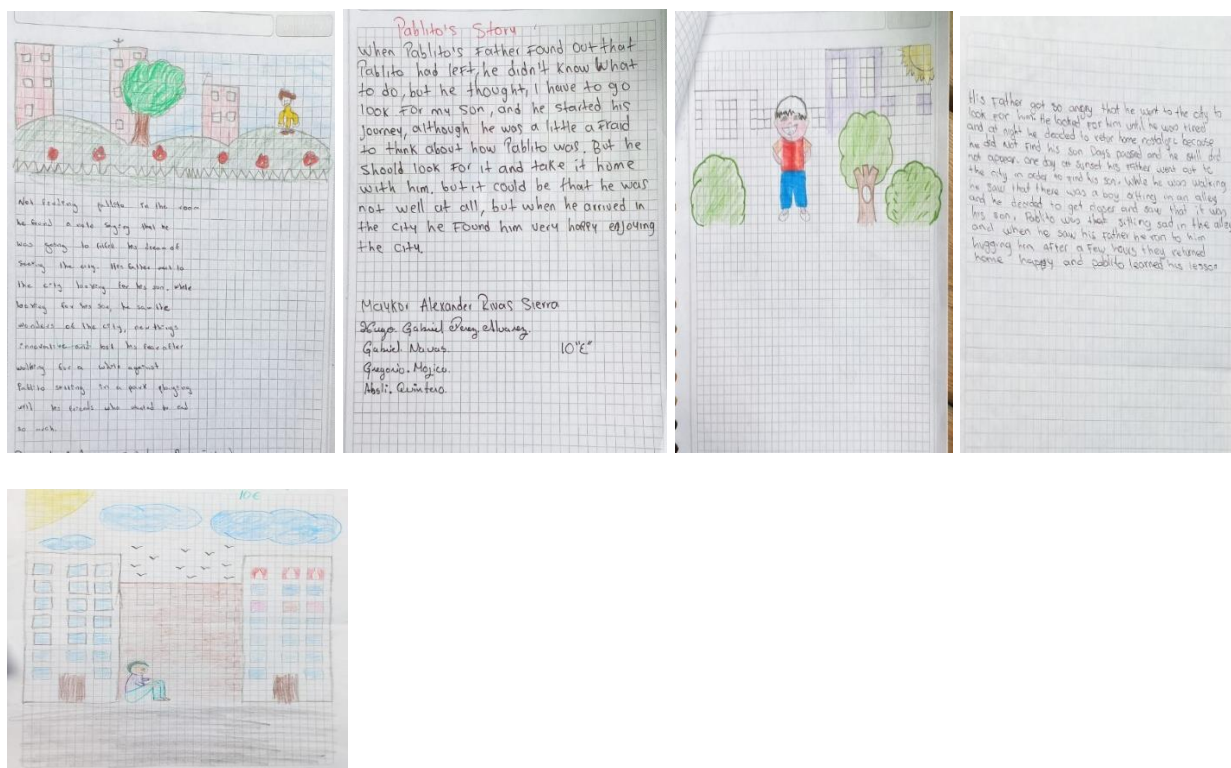 Not finding pablito in the room
he found a note saying that he
was going to fulfill his dream of
seeing the city. His father went to
the city looking for his son, while
looking for his son, he saw the
wonders of the city, new things
innovative and lost his fear after
walking for a while
Pablito sitting in a park playing
his friends who wanted to
so much.
Pablito's Story
When Pablito's Father Found out that
Pablito had left, he didn't know What
to do, but he thought, I have to go
look For my son, and he started his
journey, although he was a little afraid
to think about how Pablito was. But he
should look For it and take it home
with him, but it could be that he was
not well at all, but when he arrived in
the city he Found him very happy enjoying
the city.
Maykor Alexander Rivas Sierra
Hugo Gabriel Perez Alvarez.
Gabriel Navas. 10"E"
Gregorio. Mojica.
Abdli. Quintero.
His Father got so angry that he went to the city to
look For him, he looked For him until he was tired
and at night he decided
he did Not Find his son Days passed and he still did
not appear. one day at sunset his Father went out to
the city in order to Find his son, while he was walking
he saw that there was a boy sitting in an alley
and he decided to get closer and say, that it was
his son, Pablito was there sitting sad in the alley
and when he saw his Father he ran to him
hugging him After a Few hours they returned
home happy and pablito learned his lesson
10E